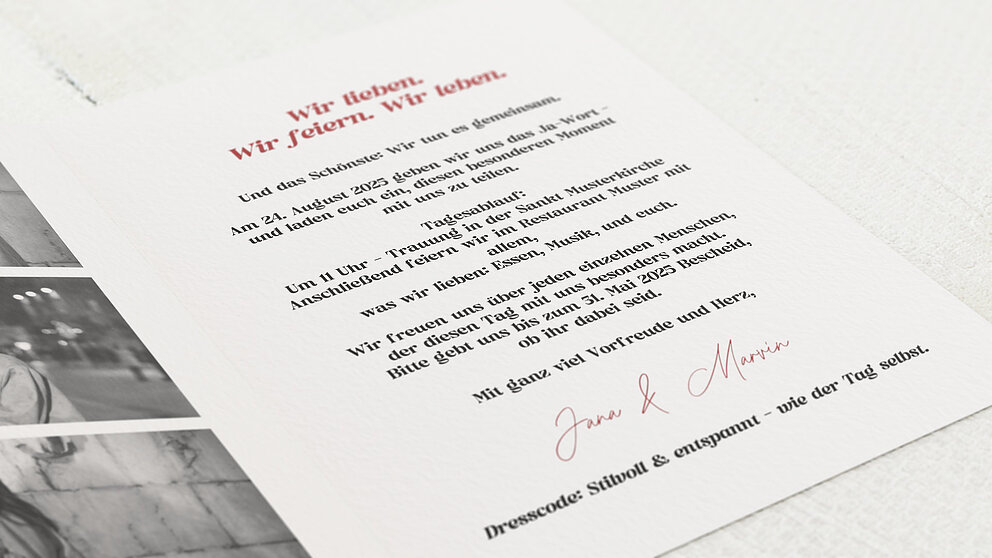 Wir lieben.
Wir feiern. Wir leben.
Und das Schönste: Wir tun es gemeinsam.
Am 24. August 2025 geben wir uns das Ja-Wort –
und laden euch ein, diesen besonderen Moment
mit uns zu teilen.
Tagesablauf:
Um 11 Uhr – Trauung in der Sankt Musterkirche
Anschließend feiern wir im Restaurant Muster mit
allem,
was wir lieben: Essen, Musik, und euch.
Wir freuen uns über jeden einzelnen Menschen,
der diesen Tag mit uns besonders macht.
Bitte gebt uns bis zum 31. Mai 2025 Bescheid,
ob ihr dabei seid.
Mit ganz viel Vorfreude und Herz,
Jana & Marvin
Dresscode: Stilvoll & entspannt – wie der Tag selbst.